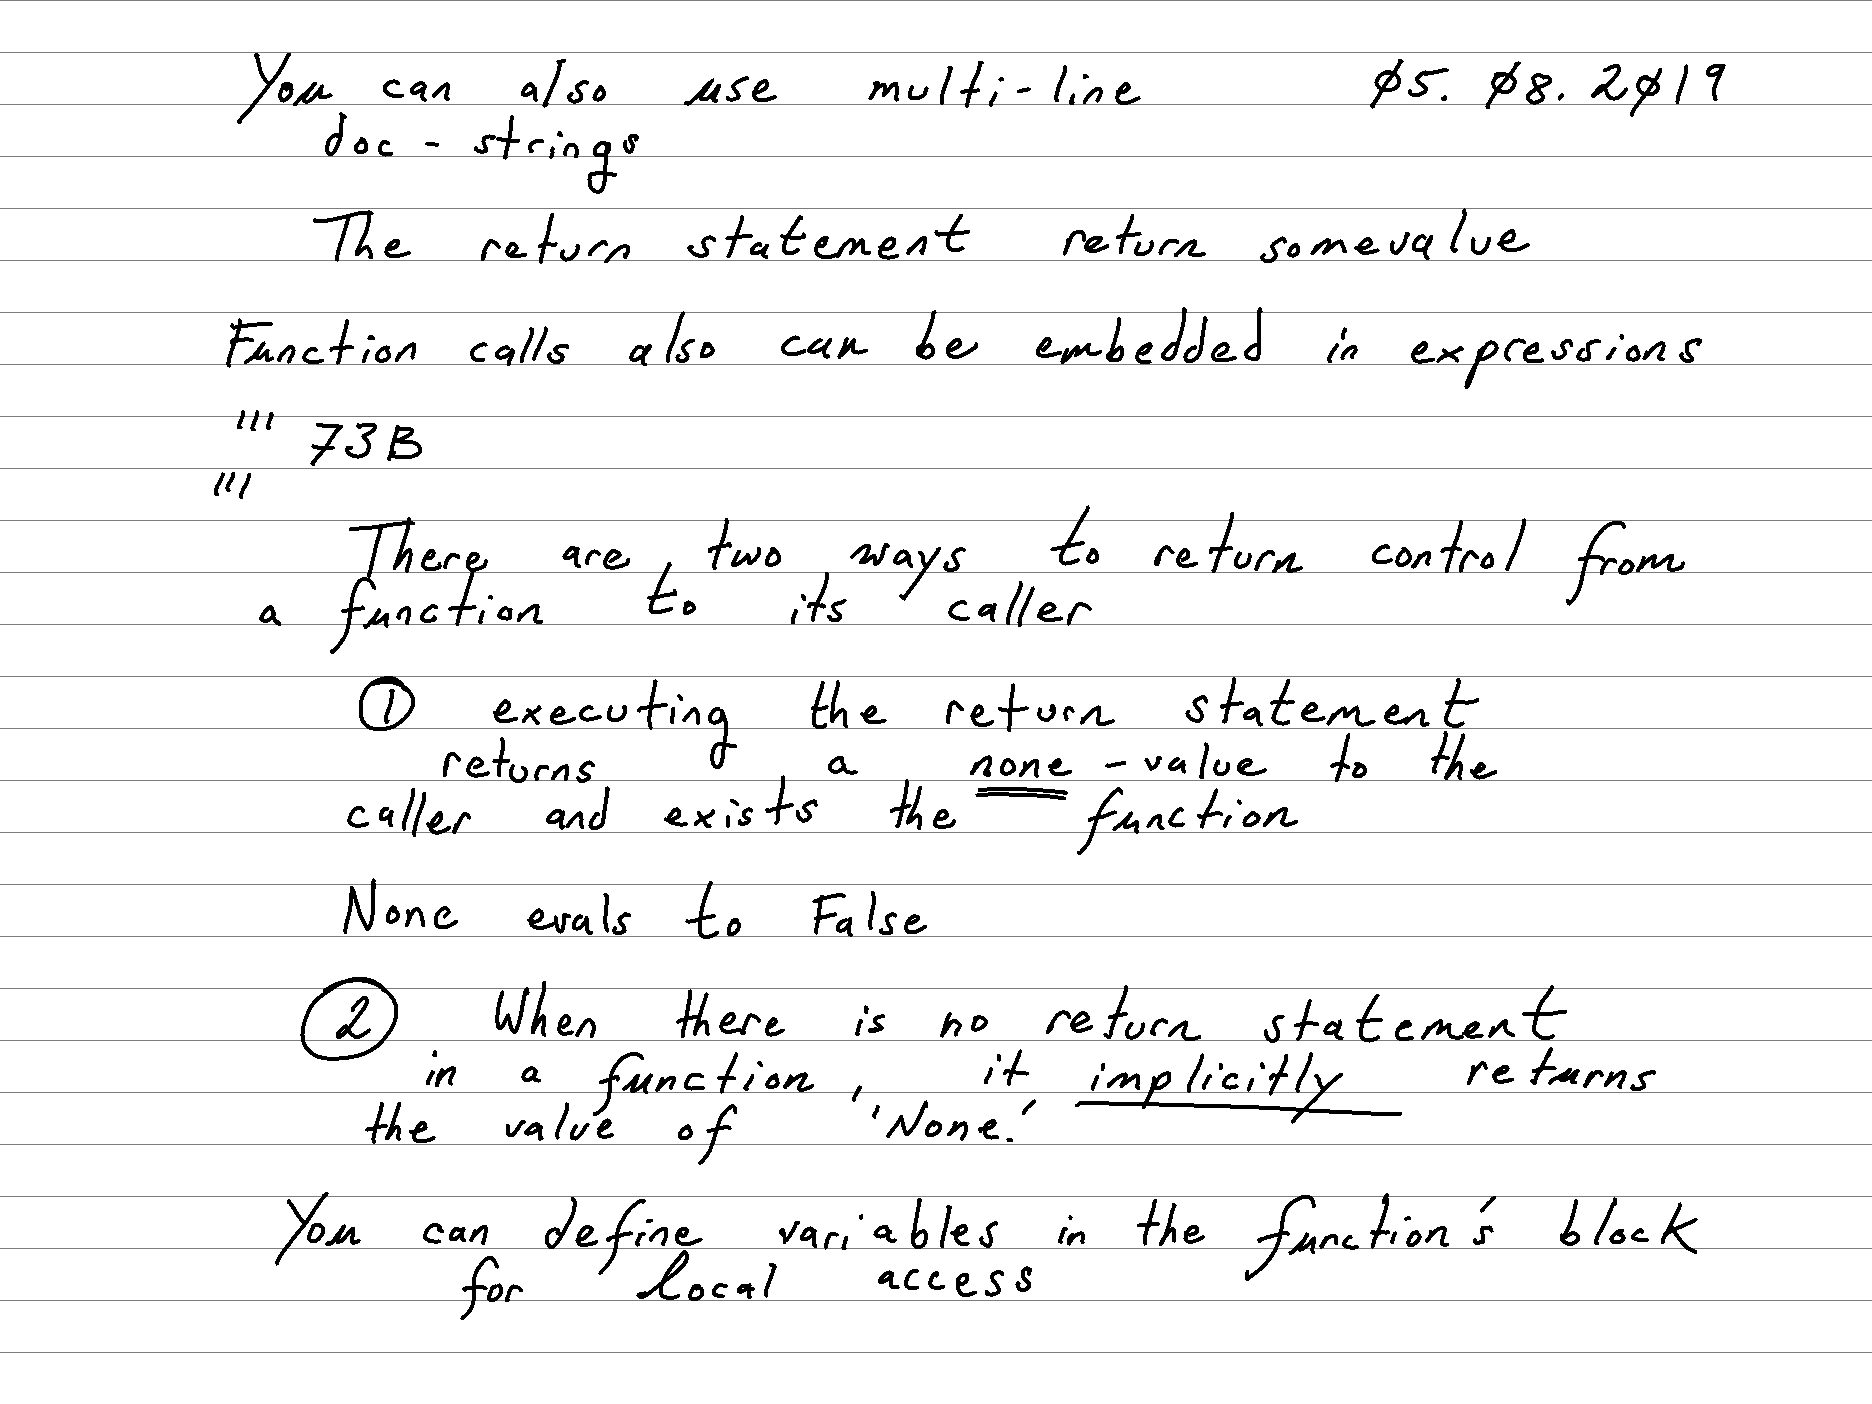 You can also use multi-line ø5. ø8. 2ø19
doc - strings
The return statement return somevalue
Function calls also can be embedded in expressions
''' 73B
'''
There are two ways to return control from
a function to its caller
① executing the return statement
returns a none - value to the
caller and exists the function
None evals to False
② When there is no return statement
in a function, it implicitly returns
the value of 'None.'
You can define variables in the function's block
for local access